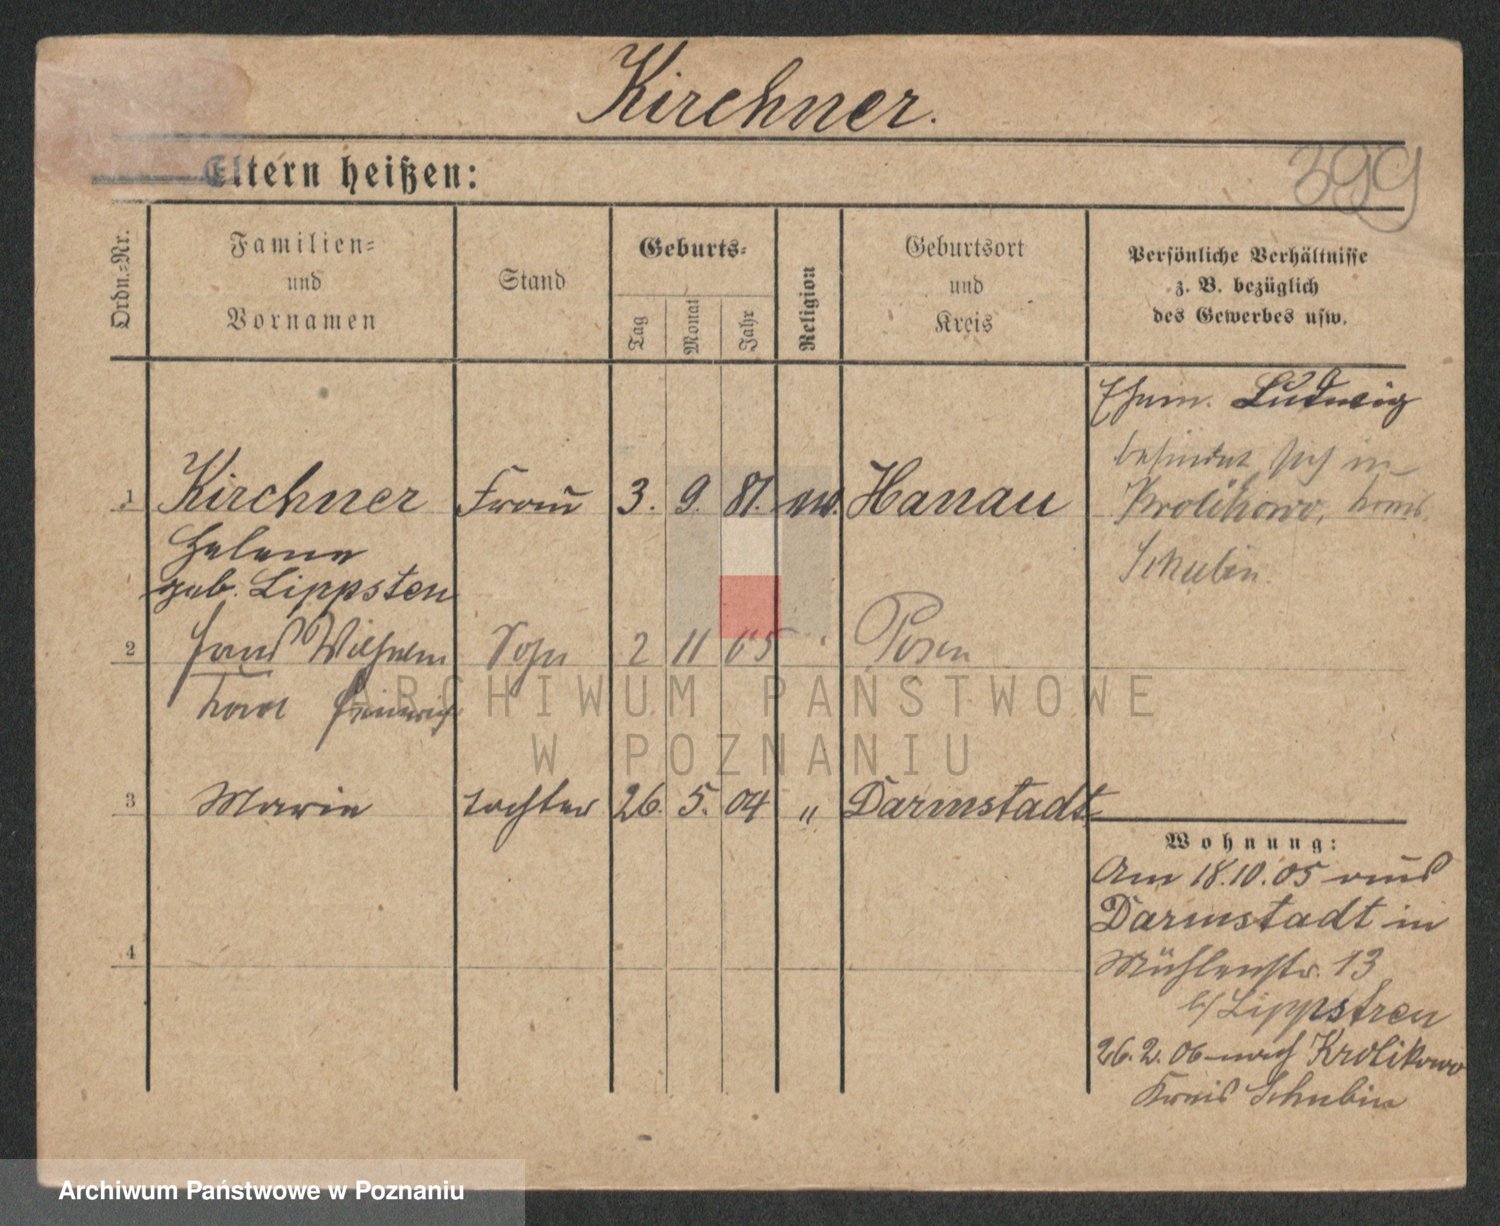 Kirchner.
399
Eltern heißen:
Ordn.-Nr.
Familien-
und
Vornamen
Stand
Geburts-
Tag
Monat
Jahr
Religion
Geburtsort
und
Kreis
Persönliche Verhältnisse
z. B. bezüglich
des Gewerbes usw.
Ehem. Ludwig
befindet sich in
Krolikowo, Kreis
Schubin.
1 Kirchner Frau 3. 9. 81. ev. Hanau
Helene
geb. Lippsten
2 Hans Wilhelm Sohn 2 11 05 " Posen
Karl Heinrich
3 Marie Tochter 26. 5. 04 " Darmstadt
4
Wohnung:
Am 18.10.05 aus
Darmstadt in
Mühlenstr. 13
b/ Lippstren
26.2.06 nach Krolikowo
Kreis Schubin
ARCHIWUM PAŃSTWOWE
W POZNANIU
Archiwum Państwowe w Poznaniu